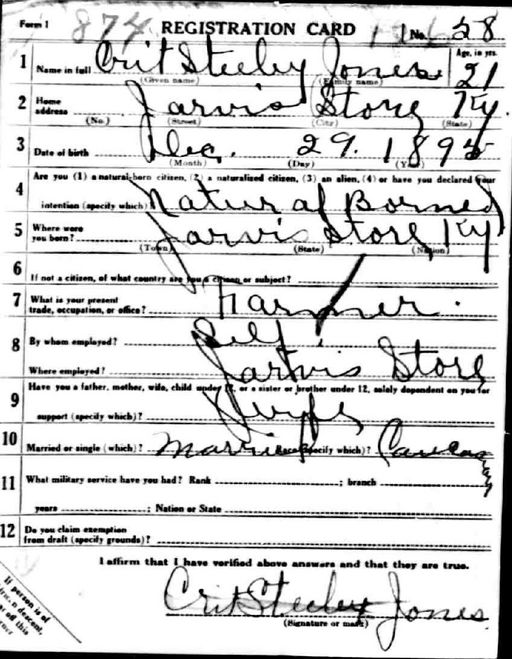 Form 1 874 REGISTRATION CARD No. 28
1 Name in full Crit Steeley Jones Age, in yrs. 21
(Given name) (Family name)
2 Home address Jarvis Store Ky.
(No.) (Street) (City) (State)
3 Date of birth Dec. 29. 1895
(Month) (Day) (Year)
4 Are you (1) a natural-born citizen, (2) a naturalized citizen, (3) an alien, (4) or have you declared your
intention (specify which)? Natural Borned
5 Where were you born? Jarvis Store, Ky
(Town) (State) (Nation)
6 If not a citizen, of what country are you a citizen or subject?
7 What is your present trade, occupation, or office? Farmer.
8 By whom employed? Self
Where employed? Jarvis Store
9 Have you a father, mother, wife, child under 12, or a sister or brother under 12, solely dependent on you for
support (specify which)? Wife
10 Married or single (which)? Married Race (specify which)?
11 What military service have you had? Rank ; branch
years ; Nation or State
12 Do you claim exemption from draft (specify grounds)?
I affirm that I have verified above answers and that they are true.
Crit Steeley Jones
(Signature or mark)
If person is of
descent,
off this